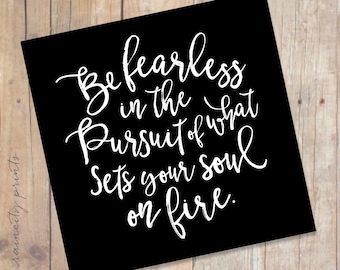 Be fearless
in the
Pursuit of what
Sets your soul
on fire.
raincity prints